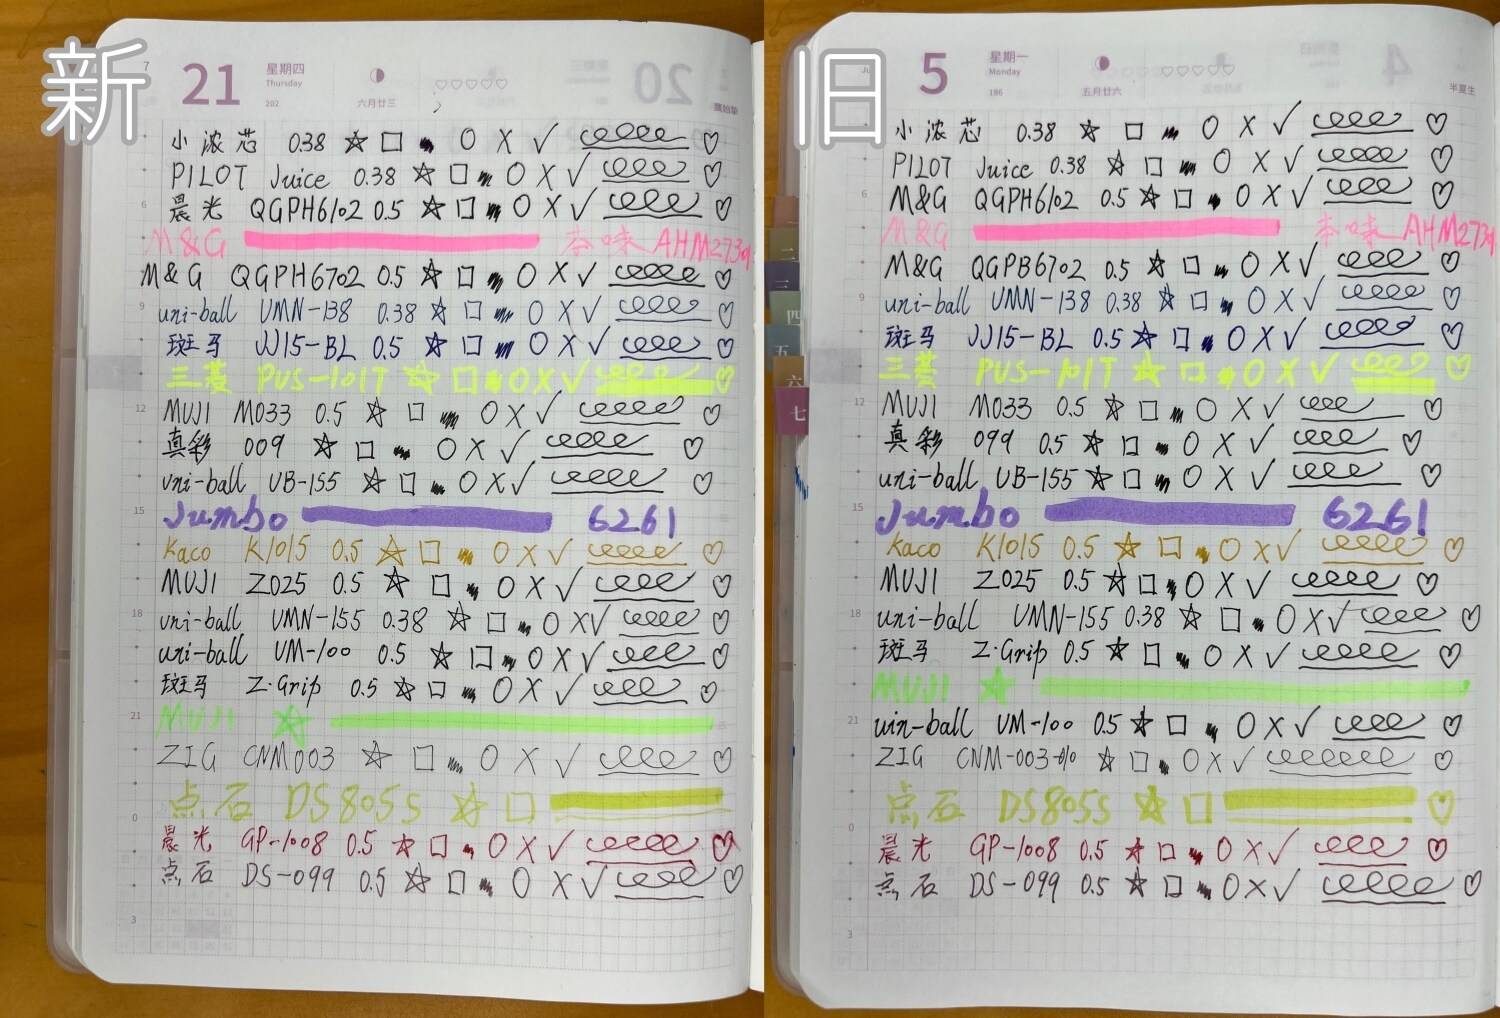 新
7
21
星期四
Thursday
202
六月廿三
20
小浓芯 0.38
PILOT Juice 0.38
晨光 QGPH6102 0.5
6
M&G 本味 AHM2739
M&G QGPH6702 0.5
uni-ball UMN-138 0.38
9
斑马 JJ15-BL 0.5
三菱 PUS-101T
MUJI M033 0.5
12
真彩 009
uni-ball UB-155
Jumbo 6261
15
Kaco K1015 0.5
MUJI Z025 0.5
uni-ball UMN-155 0.38
18
uni-ball UM-100 0.5
斑马 Z·Grip 0.5
MUJI
21
ZIG CNM003
点石 DS805S
0
晨光 GP-1008 0.5
点石 DS-099 0.5
3
旧
5
星期一
Monday
186
五月廿六
4
半夏生
小浓芯 0.38
PILOT Juice 0.38
M&G QGPH6102 0.5
6
M&G 本味 AHM2739
M&G QGPB6702 0.5
uni-ball UMN-138 0.38
9
斑马 JJ15-BL 0.5
三菱 PUS-101T
MUJI M033 0.5
12
真彩 099 0.5
uni-ball UB-155
Jumbo 6261
15
Kaco K1015 0.5
MUJI Z025 0.5
uni-ball UMN-155 0.38
18
斑马 Z·Grip 0.5
MUJI
uin-ball UM-100 0.5
21
ZIG CNM-003-010
点石 DS805S
0
晨光 GP-1008 0.5
点石 DS-099 0.5
3
二
三
四
五
六
七